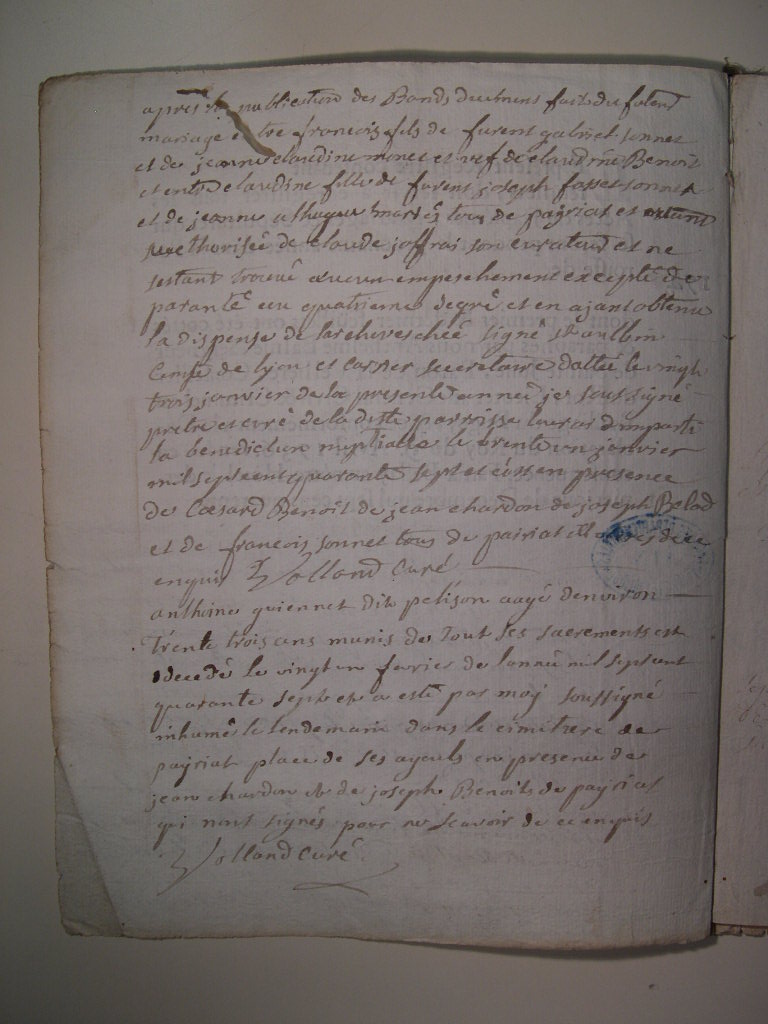 après la publication des Bands duement fait du futur
mariage entre francois fils de furent gabriel sonnet
et de jeanne claudine monet et vef de claudine Benoit
et entre claudine fille de furent joseph fasset sonnet
et de jeanne tous de payriat et
authorisée de claude joffrai son curateur et ne
sestant trouvé aucun empeschement excepté de
paranté au quatrieme degré et en ajant obtenu
la dispense de larchevesché signé st aulbin
Compte de lyon et carrier secretaire dattée le vingt
trois janvier de la presente année je soussigné
pretre et curé de la ditte parroisse leur ai imparti
la benediction nuptialle le trente un janvier
mil sept cent quarante sept et cest en presence
de Caesard Benoit de jean chardon de joseph Belod
et de francois sonnet tous de pairiat de ce
enquis Volland Curé
anthoine guiennet dit pelison aagé denviron
Trente trois ans munis de tout ses sacrements est
decedé le vingt un fevrier de lannée mil sept cent
quarante sept et a esté par moy soussigné
inhumé le lendemain dans le cimitiere de
payriat place de ses ayeuls en presence de
jean chardon et de joseph Benoit de payriat
qui nont signés pour ne scavoir de ce enquis
Volland Curé